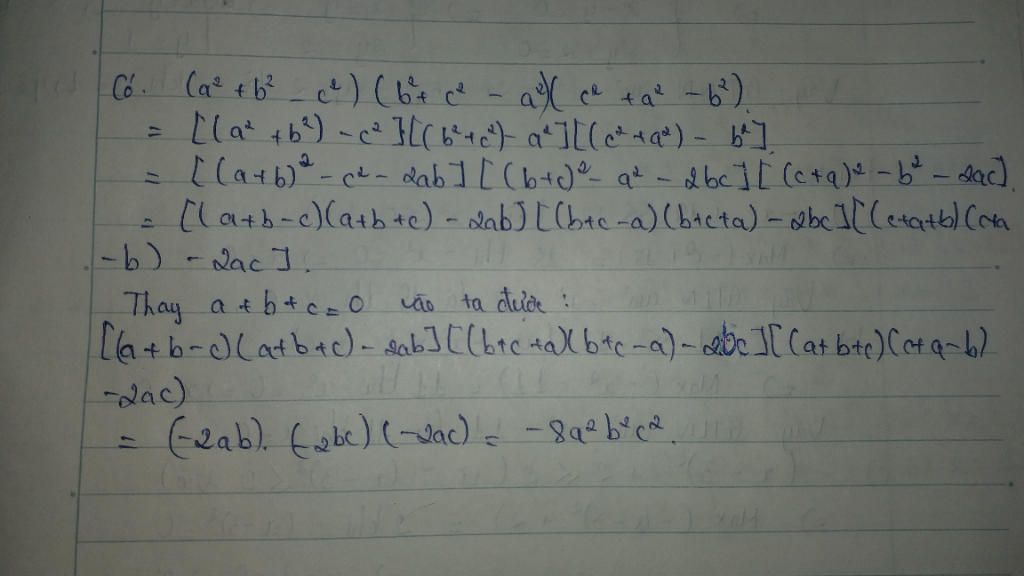 Có. (a² + b² - c²) (b² + c² - a²)( c² + a² - b²).
= [(a² + b²) - c² ][(b² + c²) - a²][(c² + a²) - b²].
= [(a+b)² - c² - 2ab] [(b+c)² - a² - 2bc][ (c+a)² - b² - 2ac].
= [(a+b-c)(a+b+c) - 2ab] [(b+c-a)(b+c+a) - 2bc][(c+a+b)(c+a
-b) - 2ac ].
Thay a + b + c = 0 vào ta được :
[(a+b-c)(a+b+c) - 2ab][(b+c+a)(b+c-a) - 2bc][(a+b+c)(c+a-b)
-2ac)
= (-2ab). (-2bc) (-2ac) = -8a²b²c².